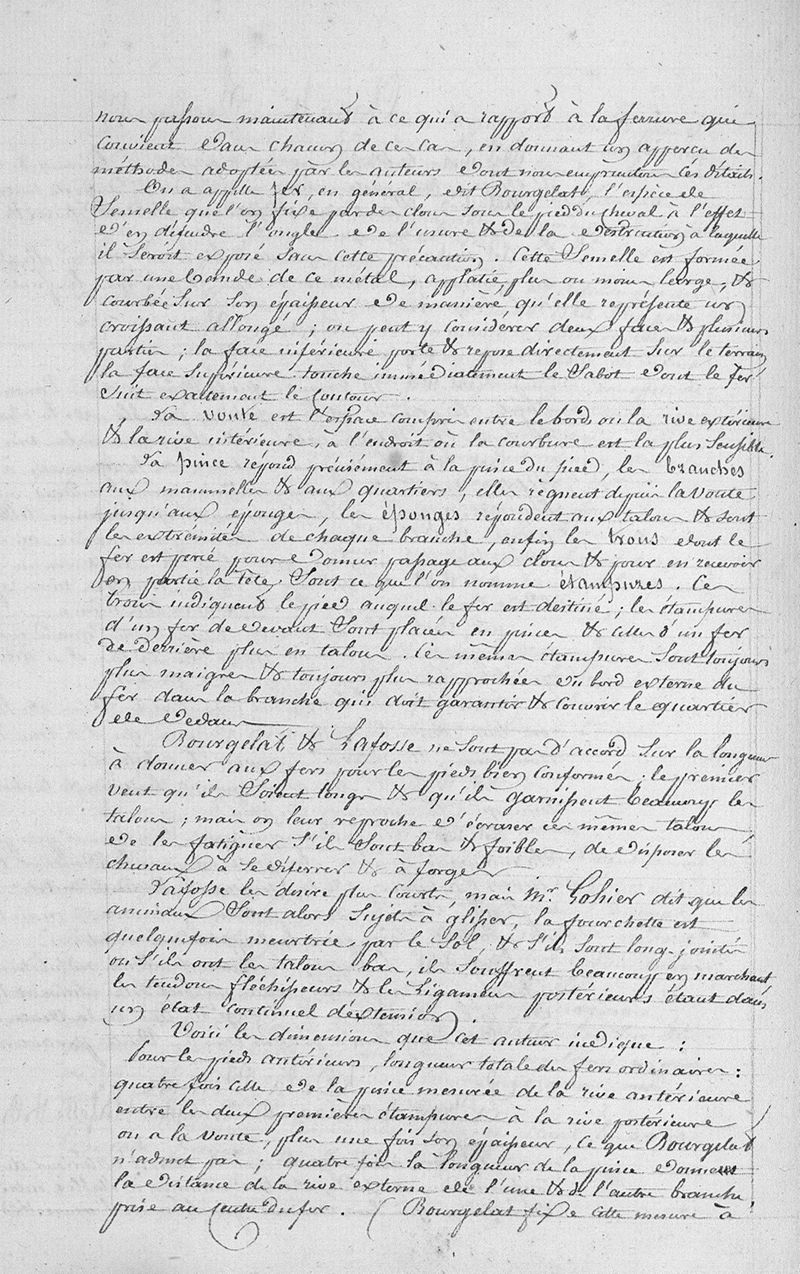 nous passons maintenant à ce qui a rapport à la ferrure qui
convient dans chacun de ces cas, en donnant un apperçu des
méthodes adoptées par les auteurs dont nous empruntons ces détails.
On a appellé fer, en général, dit Bourgelat, l'espèce de
Semelle que l'on fixe par des clous sous le pied du cheval à l'effet
d'en défendre l'ongle de l'usure & de la destruction à laquelle
il seroit exposé sans cette précaution. Cette Semelle est formée
par une bande de ce métal, applatie, plus ou moins large, &
courbée sur son épaisseur de manière qu'elle représente un
croissant allongé ; on peut y considérer deux faces & plusieurs
parties ; la face inférieure porte & repose directement sur le terrain
la face supérieure touche immédiatement le Sabot dont le fer
suit exactement le contour.
La voute est l'espace compris entre le bord ou la rive extérieure
& la rive intérieure, à l'endroit où la courbure est la plus sensible.
La pince répond précisément à la pince du pied, les branches
aux mammelles & aux quartiers, elles règnent depuis la voute
jusqu'aux éponges, les éponges répondent aux talons & sont
les extrémités de chaque branche, enfin les trous dont le
fer est percé pour donner passage aux clous & pour en recevoir
en partie la tête, sont ce que l'on nomme étampures. Ces
trous indiquent le pied auquel le fer est destiné ; les étampures
d'un fer de devant sont placées en pince & celles d'un fer
de derrière plus en talons. Ces mêmes étampures sont toujours
plus maigres & toujours plus rapprochées du bord externe du
fer dans la branche qui doit garantir & couvrir le quartier
de dedans
Bourgelat & Lafosse ne sont pas d'accord sur la longueur
à donner aux fers pour les pieds bien conformés ; le premier
veut qu'ils soient longs & qu'ils garnissent beaucoup les
talons ; mais on leur reproche d'écraser ces mêmes talons
de les fatiguer s'ils sont bas & foibles, de disposer les
chevaux à se déferrer & à forger
Lafosse les désire plus courts, mais Mr. Gohier dit que les
animaux sont alors sujets à glisser, la fourchette est
quelquefois meurtrie par le sol, & s'ils sont long-jointés
ou s'ils ont les talons bas, ils souffrent beaucoup en marchant
les tendons fléchisseurs & les ligamens postérieurs étant dans
un état continuel d'extension.
Voici les dimensions que cet auteur indique :
Pour les pieds antérieurs, longueur totale des fers ordinaires :
quatre fois celle de la pince mesurée de la rive antérieure
entre les deux premières étampures à la rive postérieure
ou a la voute, plus une fois son épaisseur, ce que Bourgelat
n'admet pas ; quatre fois la longueur de la pince donnent
la distance de la rive externe de l'une & de l'autre branche
prise au centre du fer. (Bourgelat fixe cette mesure à